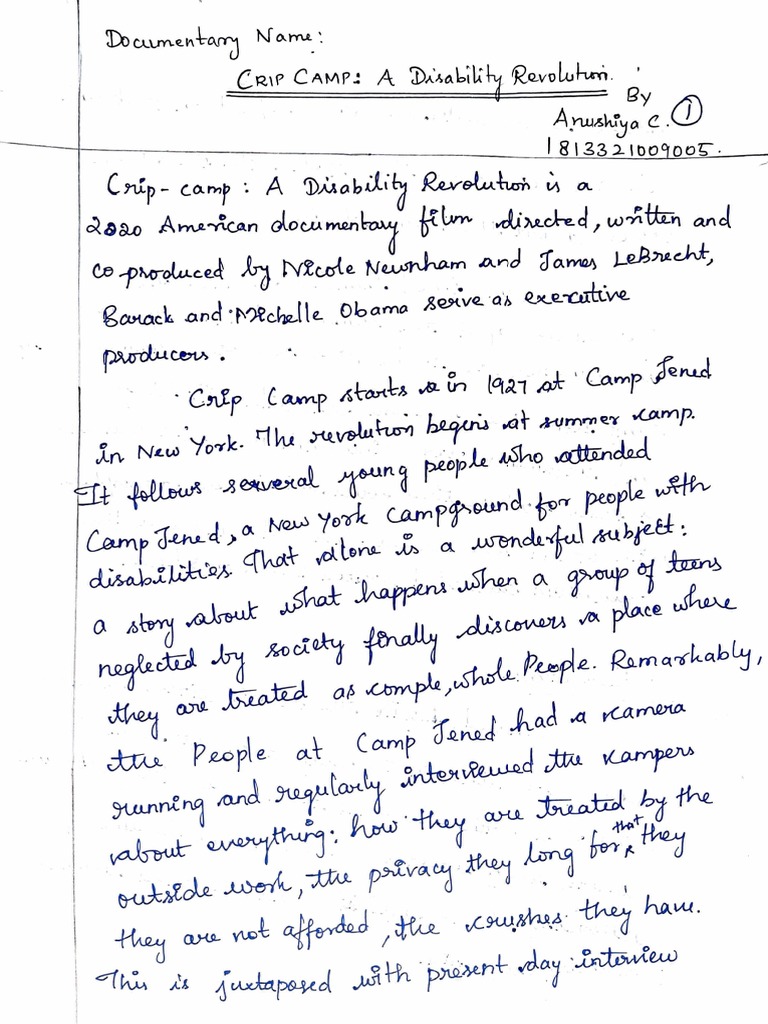 Documentary Name:
CRIP CAMP: A Disability Revolution.
By
Anushiya C. ①
1813321009005.
Crip-camp: A Disability Revolution is a
2020 American documentary film directed, written and
co-produced by Nicole Newnham and James LeBrecht,
Barack and Michelle Obama serve as executive
producers.
Crip Camp starts in 1927 at Camp Jened
in New York. The revolution begins at summer camp.
It follows serveral young people who attended
Camp Jened, a New York campground for people with
disabilities. That alone is a wonderful subject:
a story about what happens when a group of teens
neglected by society finally discovers a place where
they are treated as comple, whole People. Remarkably,
the People at Camp Jened had a camera
running and regularly interviewed the campers
about everything: how they are treated by the
outside work, the privacy they long for that they
they are not afforded, the crushes they have.
This is juxtaposed with present day interview